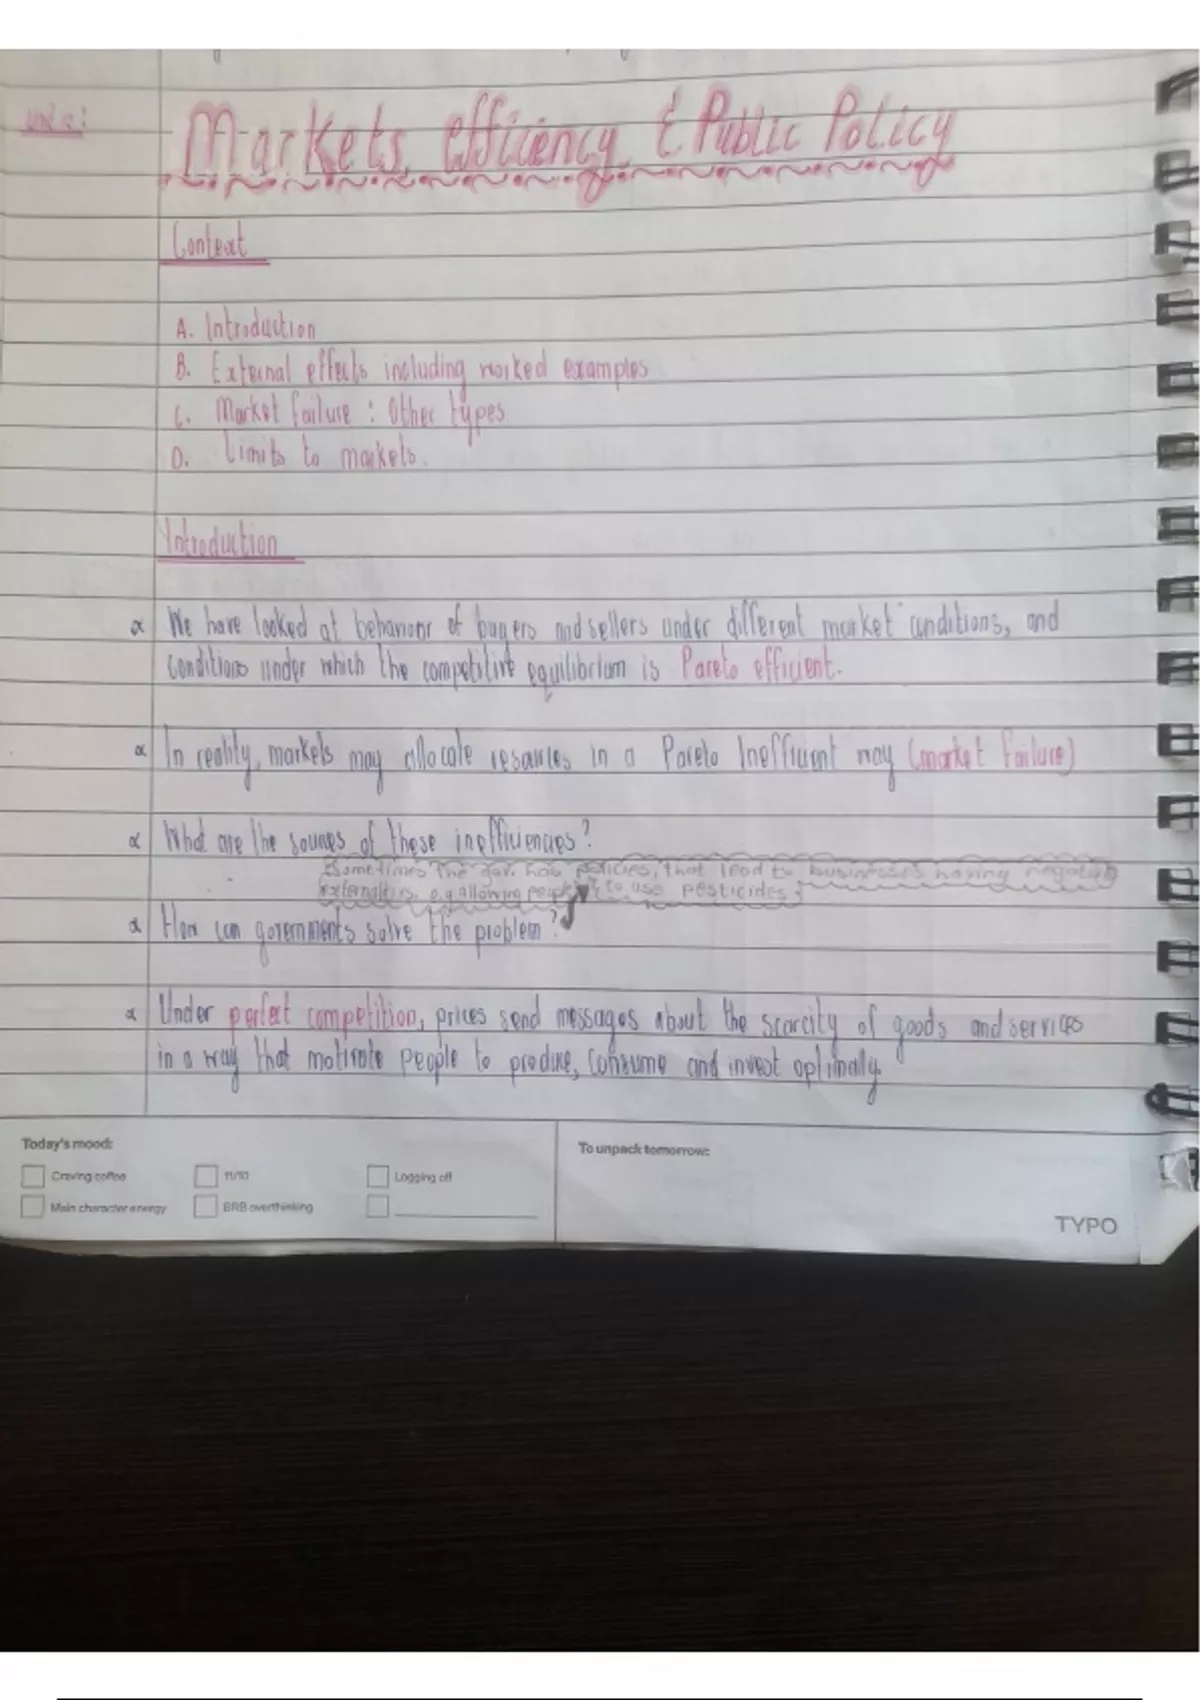 Markets, efficiency, & Public Policy
Context
A. Introduction
B. External effects including worked examples
C. Market failure : Other types
D. Limits to markets.
Introduction
∝ We have looked at behaviour of buyers and sellers under different market conditions, and
conditions under which the competitive equilibrium is Pareto efficient.
∝ In reality, markets may allocate resources in a Pareto Inefficient way (market failure)
∝ What are the sources of these inefficiencies?
Sometimes the gov. has policies, that lead to businesses having negative
externalities, e.g allowing people to use pesticides
∝ How can governments solve the problem?
∝ Under perfect competition, prices send messages about the scarcity of goods and services
in a way that motivate people to produce, consume and invest optimally.
Today's mood:
To unpack tomorrow:
Craving coffee
11/10
Logging off
Main character energy
BRB overthinking
TYPO